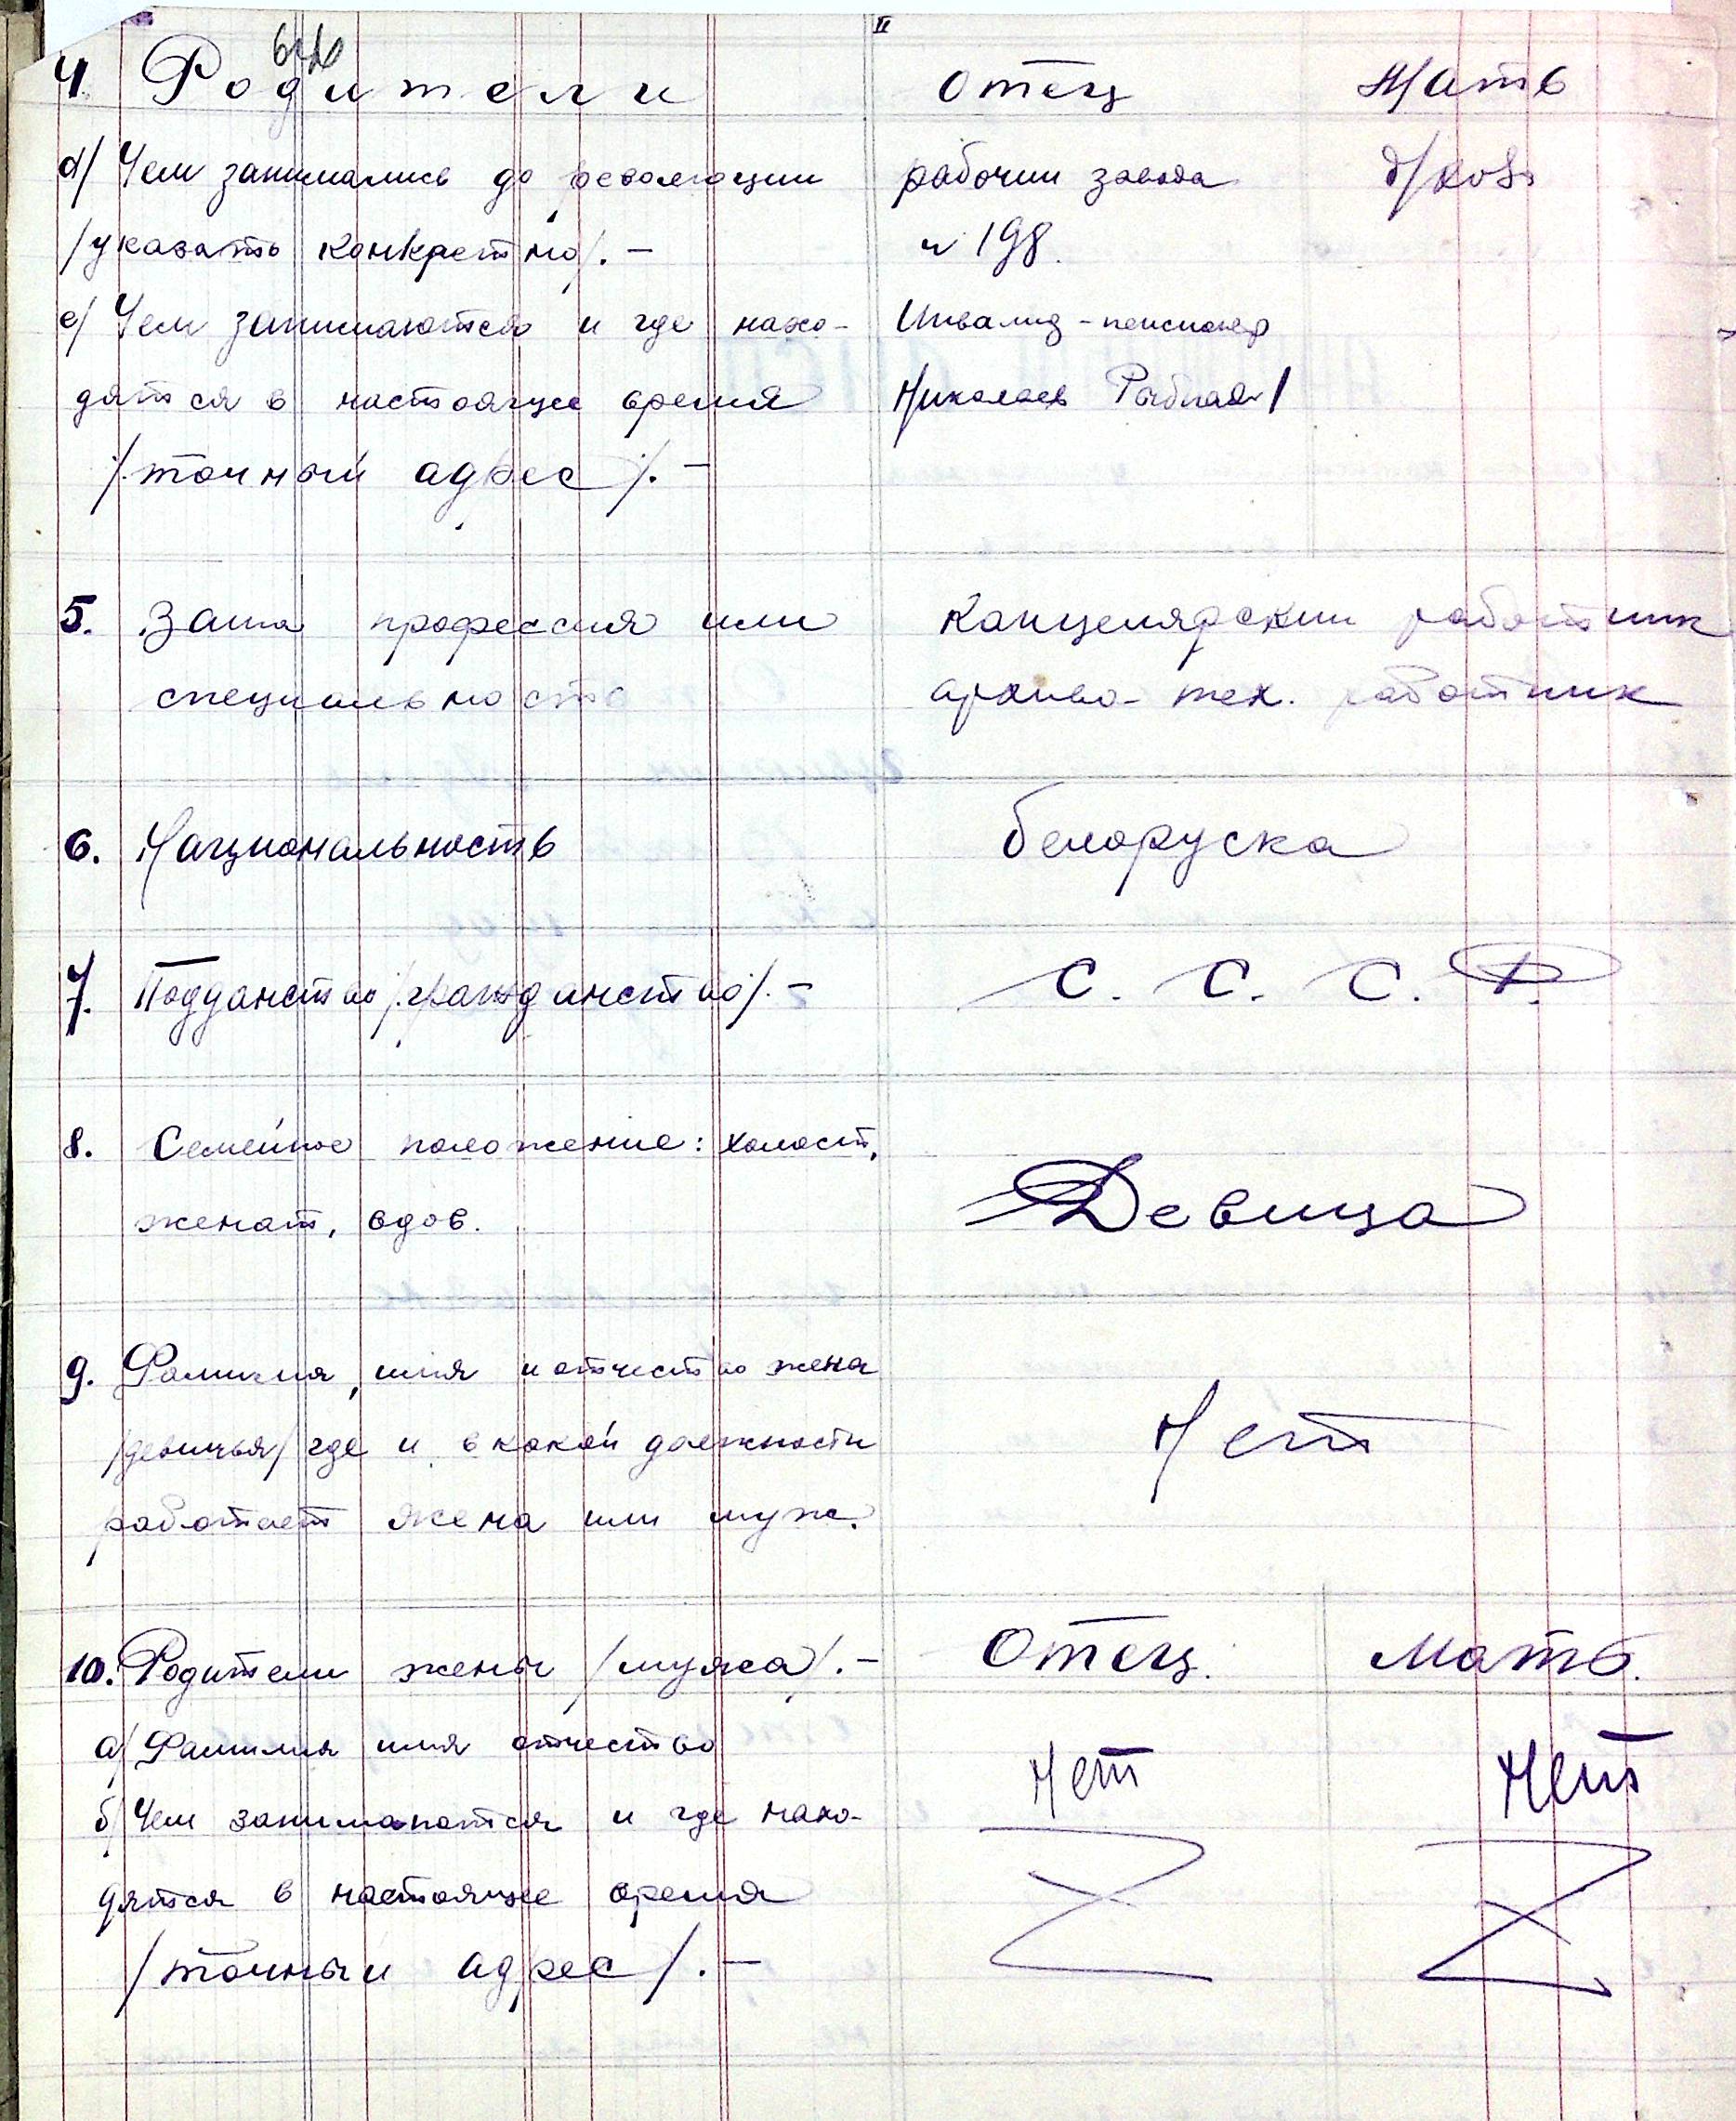 II
4. Родители Отец Мать
d/ Чем занимались до революции рабочий завода д/хоз
/указать конкретно/. – и 198.
е/ Чем занимаются и где нахо- Инвалид-пенсионер
дятся в настоящее время Николаев Рыбная 1
/точный адрес/. –
5. Ваша профессия или Канцелярский работник
специальность архиво-тех. работник
6. Национальность белоруска
7. Подданство /гражданство/. – С. С. С. Р.
8. Семейное положение: холост,
женат, вдов. Девица
9. Фамилия, имя и отчество жены
/девичья/ где и в какой должности Нет
работает жена или муж.
10. Родители жены /мужа/. – Отец. Мать.
а/ Фамилия имя отчество Нет Нет
б/ Чем занимапатся и где нахо-
дятся в настоящее время
/точный адрес/. –